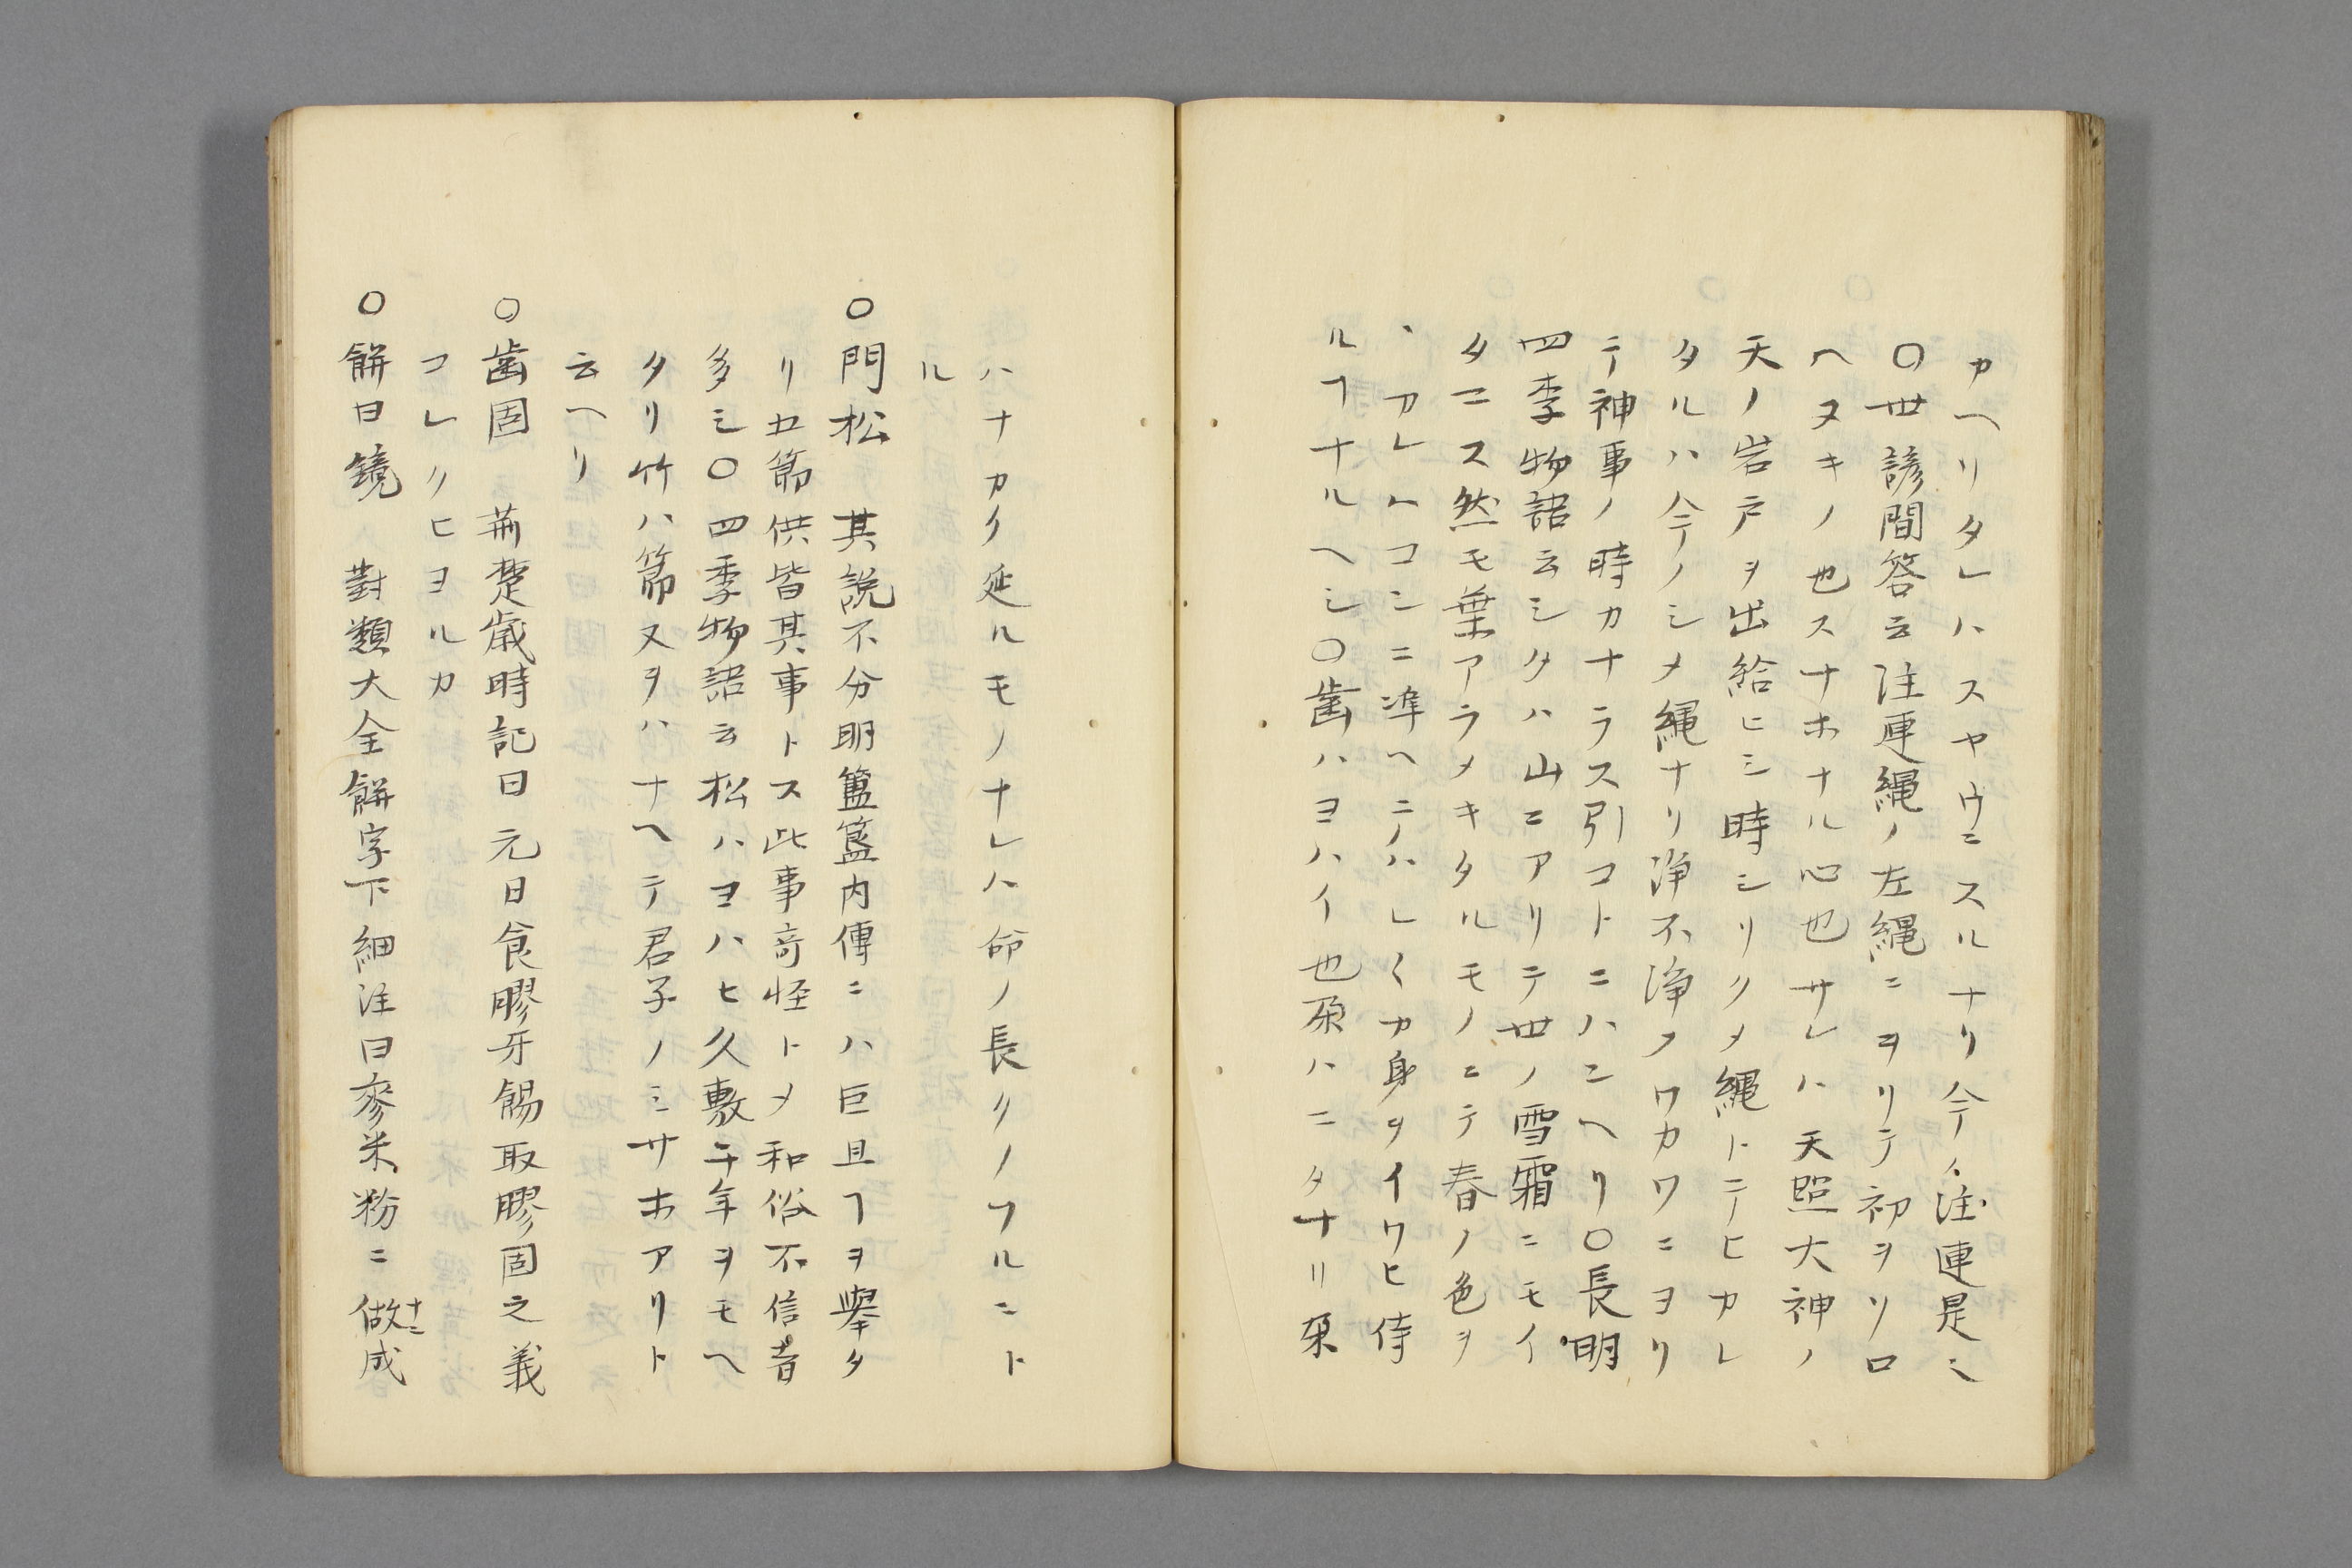 カヘリタレハスヤウニスルナリ今ノ注連是ニ
〇世諺問答云注連縄ノ左縄ニヲリテ初ヲソロ
ヘヌキノ也スナホナル心也サレハ天照大神ノ
天ノ岩戸ヲ出給ヒシ時シリクメ縄トテヒカレ
タルハ今ノシメ縄ナリ浄不浄ヲワカワニヨリ
テ神事ノ時カナラス引コトニハニヘリ〇長明
四季物語云シタハ山ニアリテ世ノ雪霜ニモイ
タマス然モ葉アラメキタルモノニテ春ノ色ヲ
カ身ヲイワヒ侍
ルフナルヘシ〇歯ハヨハイ也
ハナカク延ルモノナレハ命ノ長クノフルニト
ル
〇門松 其説不分明簠簋内傳ニハ巨旦フヲ擧タ
リ五節供皆其事トス此事奇怪トメ和俗不信者
多シ〇四季物語云松ハヨハヒ久敷千年ヲモヘ
タリ竹ハ節又ヲハナヘテ君子ノミサホアリト
云ヘリ
〇歯固 荊楚歳時記曰元日食膠牙餳取膠固之義
コレクヒヨルカ
〇餅曰鏡 對類大全餅字下細注曰糝米粉ニ做ナニ成